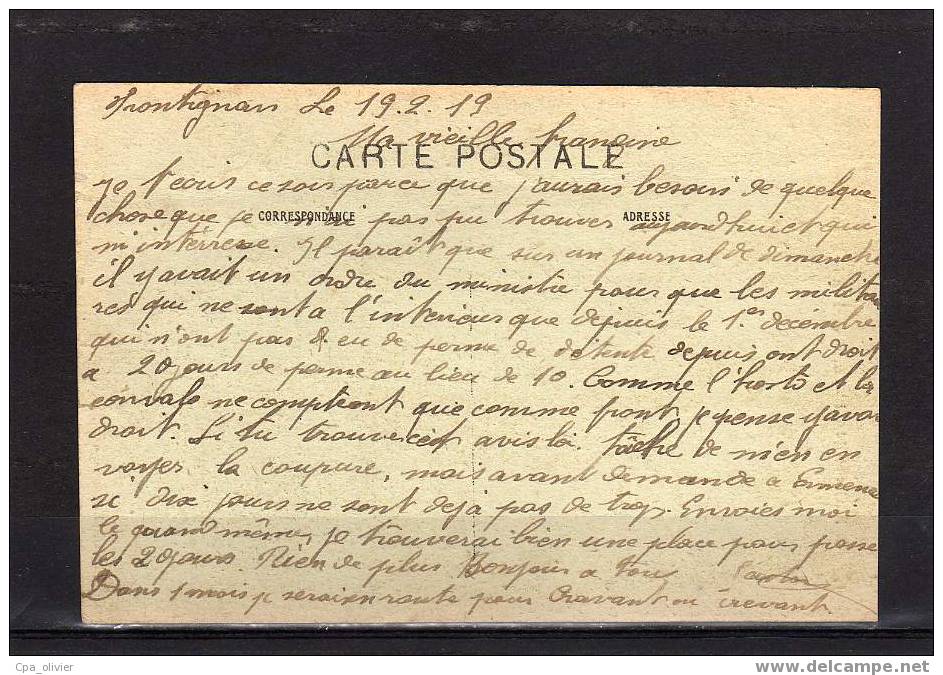 Frontignan Le 19.2.19
Ma vieille francine
CARTE POSTALE
Je t'ecris ce soir parce que j'aurais besoin de quelque
chose que je n'ai pas pu trouver aujourd'hui et qui
CORRESPONDANCE ADRESSE
m'intérresse. Il paraît que sur un journal de dimanche
il y avait un ordre du ministre pour que les militai
res qui ne sont a l'interieur que depuis le 1er decembre
qui n'ont pas eu de perme de détente depuis ont droit
a 20 jours de perme au lieu de 10. Comme l'hosto et la
convalo ne comptent que comme front je pense y avoir
droit. Si tu trouve cet avis là tâche de m'en en
voyer la coupure, mais avant demande a
si dix jours ne sont deja pas de trop. Envoies moi
le quand même, je trouverai bien une place pour passer
les 20 jours. Rien de plus Bonjour a tous
Dans 1 mois je serai en route pour Cravant ou crevant
Cpa_olivier
www.delcampe.net